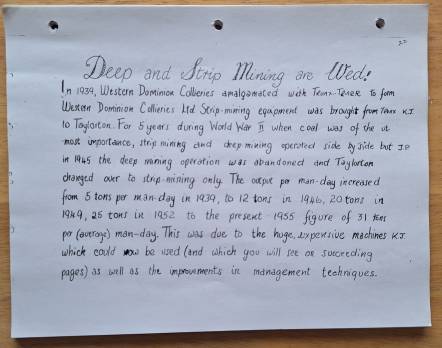 Deep and Strip Mining are Wed!
In 1939, Western Dominion Collieries amalgamated with Truax-Traer to form
Western Dominion Collieries Ltd Strip-mining equipment was brought from Truax K.J.
to Taylorton. For 5 years during World War II when coal was of the ut
most importance, strip mining and deep mining operated side by side but J.P
in 1945 the deep mining operation was abandoned and Taylorton
changed over to strip-mining only. The output per man-day increased
from 5 tons per man-day in 1939, to 12 tons in 1946, 20 tons in
1949, 25 tons in 1952 to the present-1955 figure of 31 tons
per (average) man-day. This was due to the huge, expensive machines K.J.
which could now be used (and which you will see on succeeding
pages) as well as the improvements in management techniques.